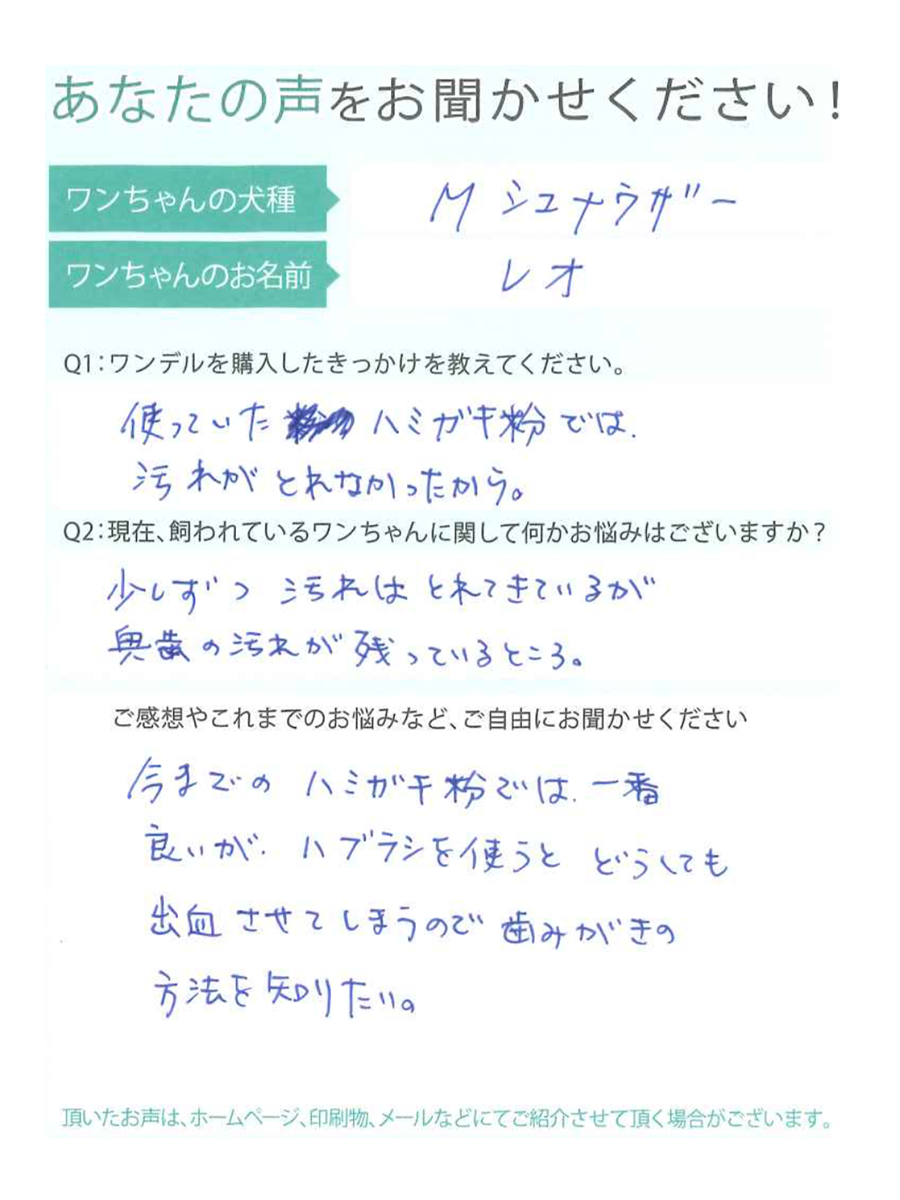 あなたの声をお聞かせください！
ワンちゃんの犬種
M シュナウザー
ワンちゃんのお名前
レオ
Q1：ワンデルを購入したきっかけを教えてください。
使っていた ハミガキ粉では、
汚れがとれなかったから。
Q2：現在、飼われているワンちゃんに関して何かお悩みはございますか？
少しずつ 汚れは とれてきているが
奥歯の汚れが残っているところ。
ご感想やこれまでのお悩みなど、ご自由にお聞かせください
今までの ハミガキ粉では、一番
良いが、ハブラシを使うと どうしても
出血させてしまうので 歯みがきの
方法を知りたい。
頂いたお声は、ホームページ、印刷物、メールなどにてご紹介させて頂く場合がございます。